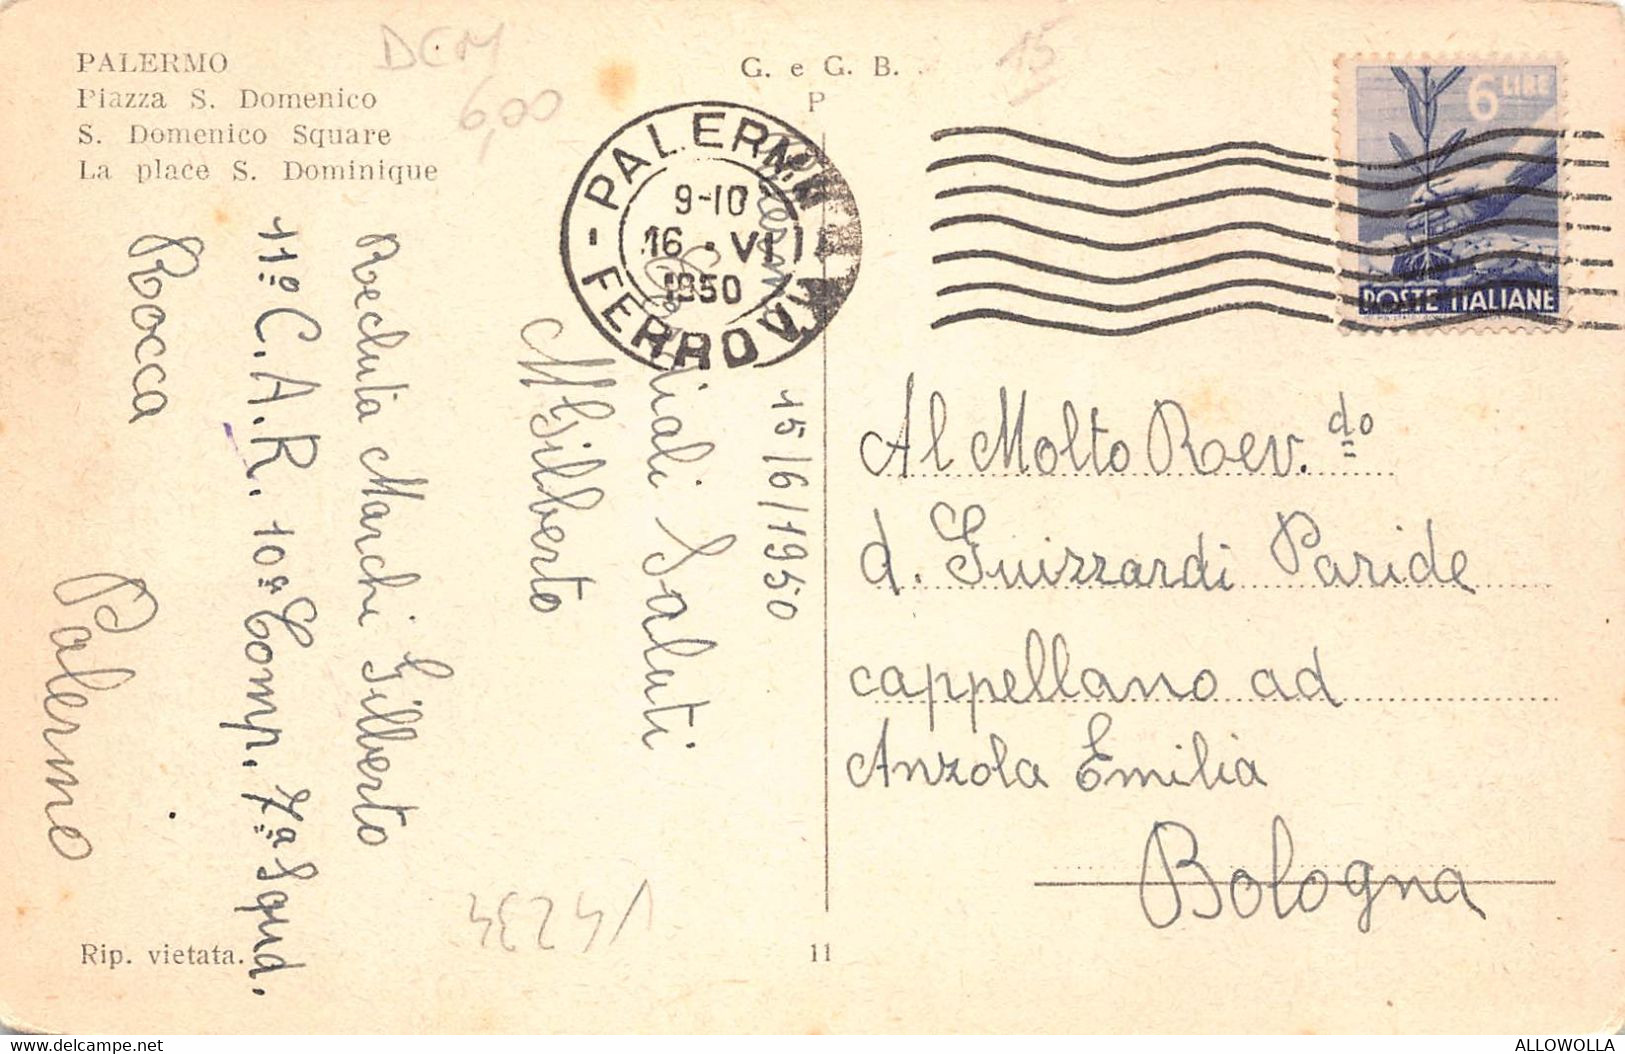 PALERMO
Piazza S. Domenico
S. Domenico Square
La place S. Dominique
DCM
6,00
G. e G. B.
P
15
PALERMO
FERROVIA
9-10
16 · VI
1950
6 LIRE
POSTE ITALIANE
Palermo
15/6/1950
Cordiali Saluti
MGilberto
Recluta Marchi Gilberto
11º C.A.R. 10ª Comp. 7ª Squd.
Rocca
Palermo
Al Molto Rev.do
d. Guizzardi Paride
cappellano ad
Anzola Emilia
Bologna
Rip. vietata.
11
www.delcampe.net
ALLOWOLLA